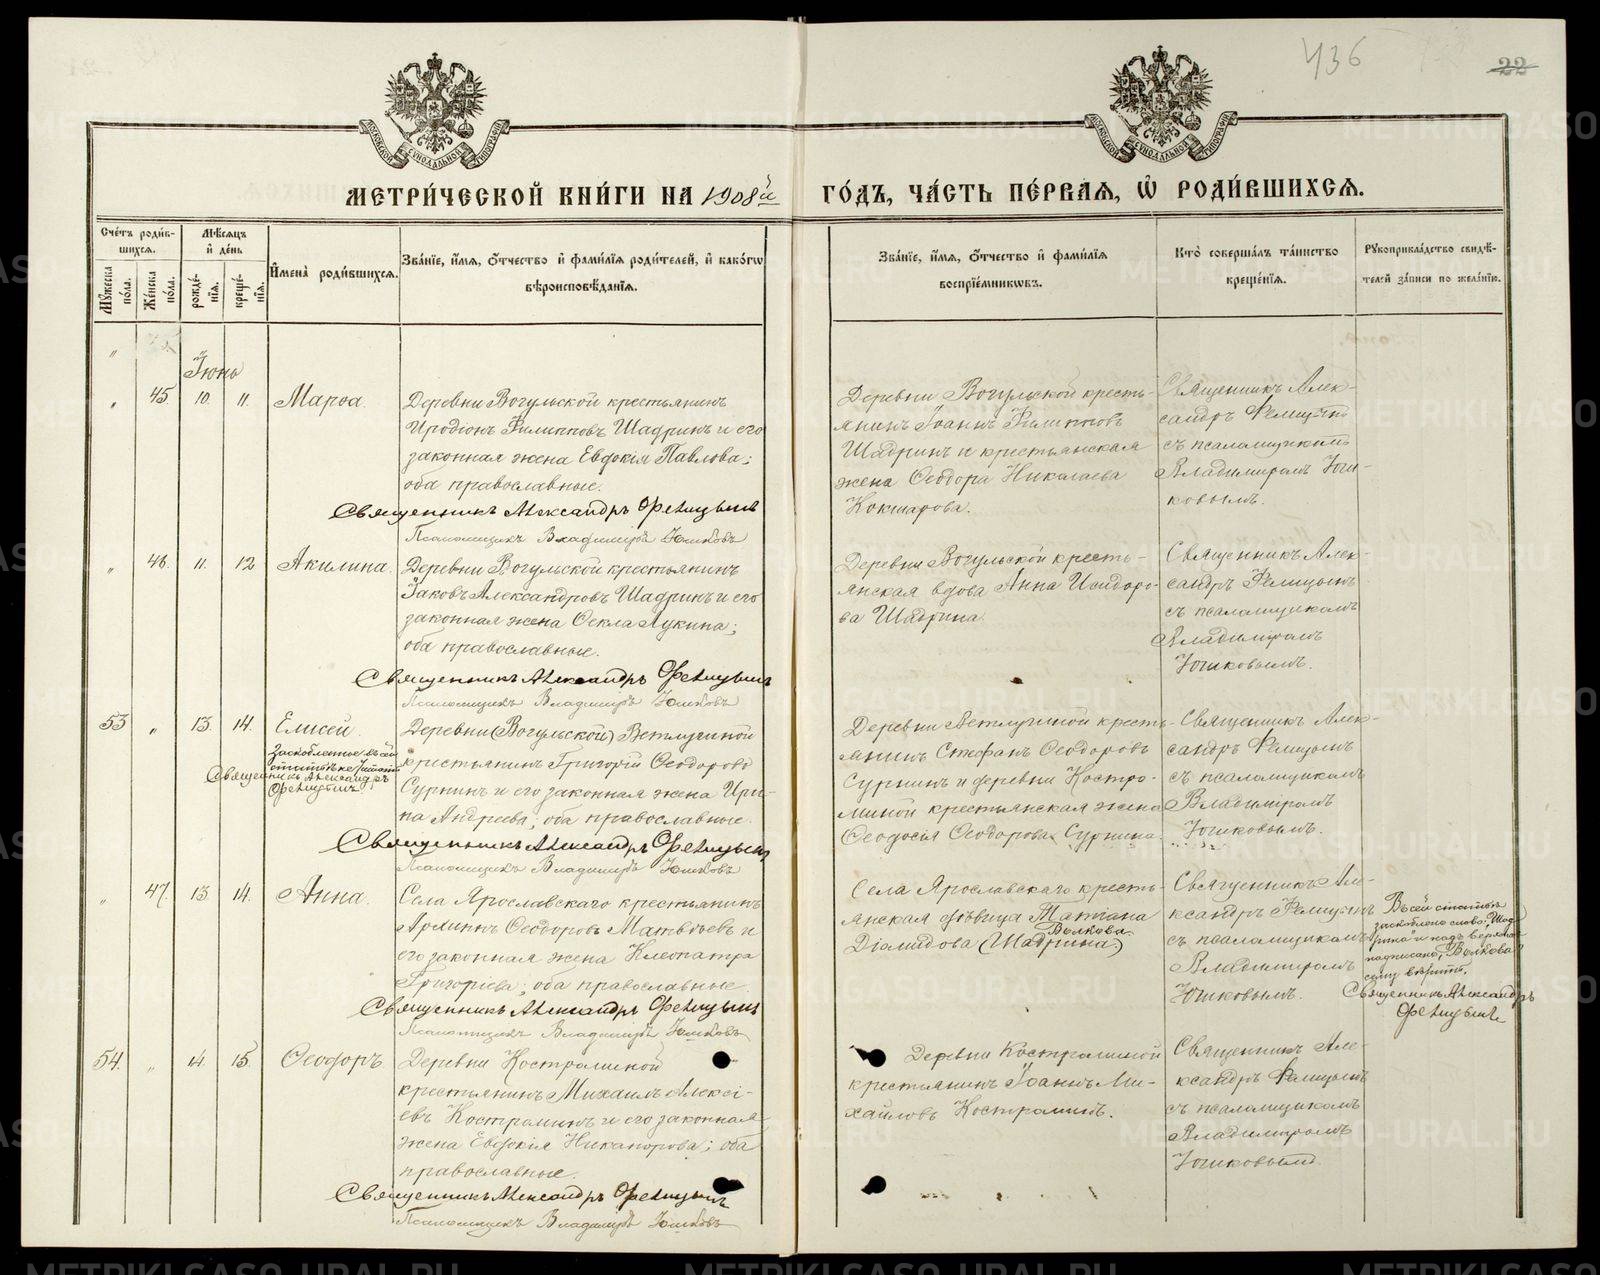 436
22
МОСКОВСКОЙ СѴНОДАЛЬНОЙ ТИПОГРАФІИ
МОСКОВСКОЙ СѴНОДАЛЬНОЙ ТИПОГРАФІИ
МЕТРИ́ЧЕСКОЙ КНИ́ГИ НА 1908й ГО́ДЪ, ЧА́СТЬ ПЕ́РВАЯ, Ѡ҆ РОДИ́ВШИХСЯ.
Сче́тъ роди́вшихся.
Мѣ́сяцъ и҆ де́нь
Му́жеска по́ла.
Же́нска по́ла.
рожде́нїя.
креще́нїя.
И҆мена̀ роди́вшихся.
Зва́нїе, и҆́мя, ѻ҆́тчество и҆ фами́лїя роди́телей, и҆ како́гѡ
вѣроисповѣ́данїя.
Зва́нїе, и҆́мя, ѻ҆́тчество и҆ фами́лїя
воспрїе́мникѡвъ.
Кто̀ соверша́лъ та́инство
креще́нїя.
Рꙋкоприкла́дство свидѣ́-
телей за́писи по жела́нїю.
Іюнь
" 45 10. 11. Марѳа.
Деревни Вогульской крестьянинъ
Иродіонъ Филипповъ Шадринъ и его
законная жена Евдокія Павлова;
оба православные.
Священникъ Александръ Фелицынъ
Псаломщикъ Владиміръ Юшковъ
Деревни Вогульской кресть-
янинъ Іоаннъ Филипповъ
Шадринъ и крестьянская
жена Ѳеодора Николаева
Кокшарова.
Священникъ Алек-
сандръ Фелицынъ
съ псаломщикомъ
Владимиромъ Юш-
ковымъ.
" 46. 11. 12 Акилина.
Деревни Вогульской крестьянинъ
Іаковъ Александровъ Шадринъ и его
законная жена Ѳекла Лукина;
оба православные.
Священникъ Александръ Фелицынъ
Псаломщикъ Владиміръ Юшковъ
Деревни Вогульской кресть-
янская вдова Анна Исидоро-
ва Шадрина.
Священникъ Алек-
сандръ Фелицынъ
съ псаломщикомъ
Владимиромъ
Юшковымъ.
53 " 13. 14. Елисей.
Заскобленное въ сей
статьѣ не читать
Священникъ Александръ
Фелицынъ
Деревни (Вогульской) Ветлугиной
крестьянинъ Григорій Ѳеодоровъ
Суринъ и его законная жена Ири-
на Андреева; оба православные.
Священникъ Александръ Фелицынъ
Псаломщикъ Владиміръ Юшковъ
Деревни Ветлугиной кресть-
янинъ Стефанъ Ѳеодоровъ
Суринъ и деревни Костро-
миной крестьянская жена
Ѳеодосія Ѳеодорова Сурнина.
Священникъ Алек-
сандръ Фелицынъ
съ псаломщикомъ
Владиміромъ
Юшковымъ.
" 47. 13. 14. Анна.
Села Ярославскаго крестьянинъ
Архипъ Ѳеодоровъ Матвѣевъ и
его законная жена Клеопатра
Григоріева; оба православные.
Священникъ Александръ Фелицынъ
Псаломщикъ Владиміръ Юшковъ
Села Ярославскаго кресть-
янская дѣвица Татіана
Волкова.
Діомидова (Шадрина.)
Священникъ Але-
ксандръ Фелицынъ
съ псаломщикомъ
Владимиромъ
Юшковымъ.
Въ сей статьѣ
заскоблено слово: "Шад-
рина" и надъ верхомъ
надписано: "Волкова"
сему вѣрить.
Священникъ Александръ
Фелицынъ
54. " 14. 15. Ѳеодоръ.
Деревни Костроминой
крестьянинъ Михаилъ Алексі-
евъ Костроминъ и его законная
жена Евдокія Никанорова; оба
православные.
Священникъ Александръ Фелицынъ
Псаломщикъ Владиміръ Юшковъ
Деревни Костроминой
крестьянинъ Іоаннъ Ми-
хайловъ Костроминъ.
Священникъ Але-
ксандръ Фелицынъ
съ псаломщикомъ
Владимиромъ
Юшковымъ.
METRIKI.GASO-URAL.RU